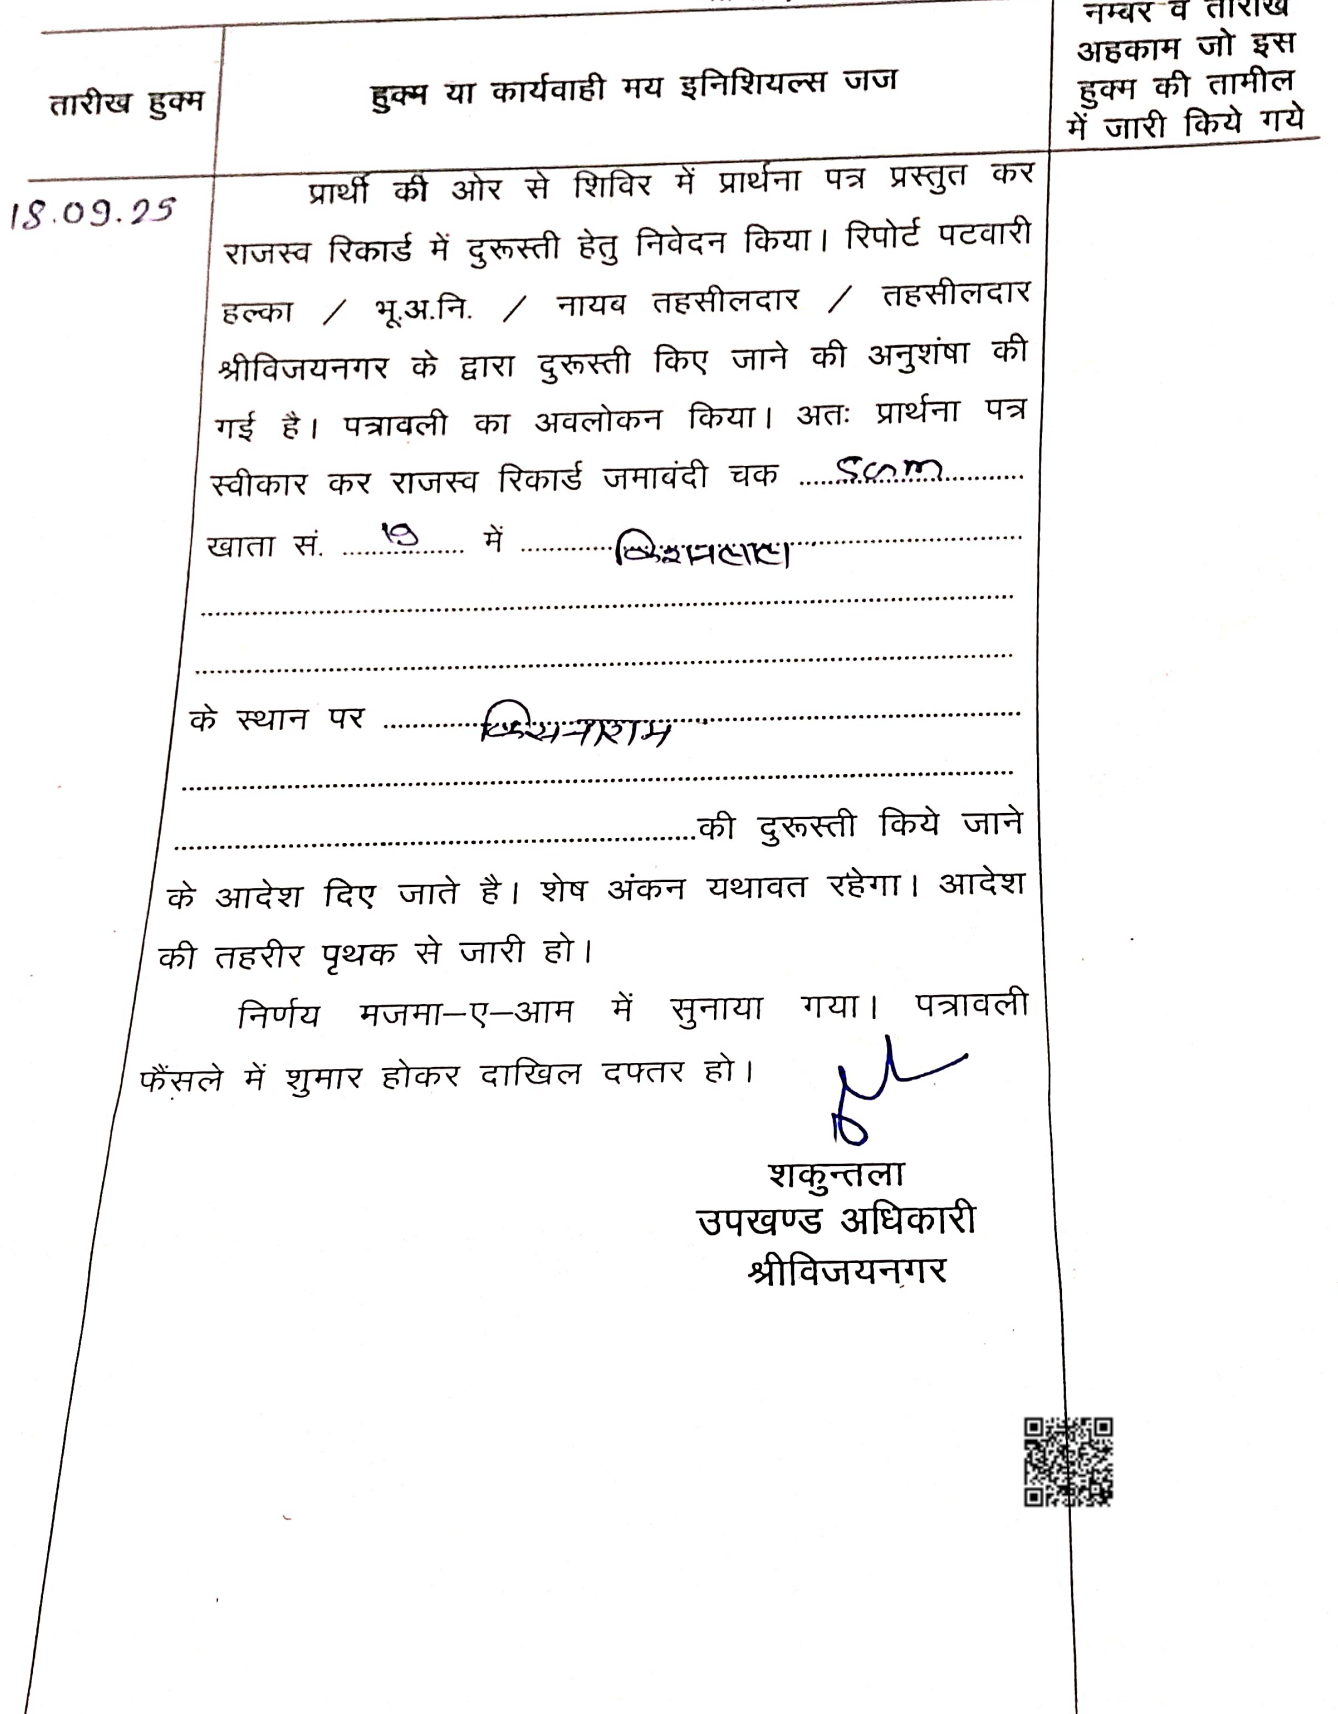 नम्बर व तारीख
अहकाम जो इस
हुक्म की तामील
में जारी किये गये
तारीख हुक्म
हुक्म या कार्यवाही मय इनिशियल्स जज
18.09.25
प्रार्थी की ओर से शिविर में प्रार्थना पत्र प्रस्तुत कर
राजस्व रिकार्ड में दुरूस्ती हेतु निवेदन किया। रिपोर्ट पटवारी
हल्का / भू.अ.नि. / नायब तहसीलदार / तहसीलदार
श्रीविजयनगर के द्वारा दुरूस्ती किए जाने की अनुशंषा की
गई है। पत्रावली का अवलोकन किया। अतः प्रार्थना पत्र
स्वीकार कर राजस्व रिकार्ड जमाबंदी चक ........................
खाता सं. ........19........ में ........किशनलाल........
के स्थान पर ........किशनाराम........
........की दुरूस्ती किये जाने
के आदेश दिए जाते है। शेष अंकन यथावत रहेगा। आदेश
की तहरीर पृथक से जारी हो।
निर्णय मजमा–ए–आम में सुनाया गया। पत्रावली
फैंसले में शुमार होकर दाखिल दफ्तर हो।
शकुन्तला
उपखण्ड अधिकारी
श्रीविजयनगर